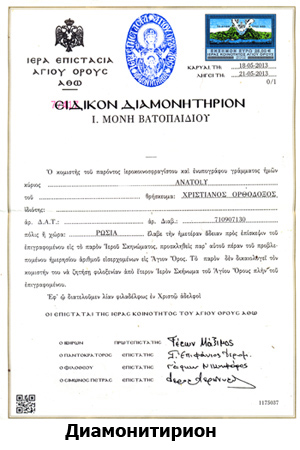 ΙΕΡΑ ΕΠΙΣΤΑΣΙΑ
ΑΓΙΟΥ ΟΡΟΥΣ
ΑΘΩ
ΚΑΡΥΑΙ ΤΗ: 18-05-2013
ΛΗΓΕΙ ΤΗ: 21-05-2013
0/1
ΕΙΔΙΚΟΝ ΔΙΑΜΟΝΗΤΗΡΙΟΝ
Ι. ΜΟΝΗ ΒΑΤΟΠΑΙΔΙΟΥ
Ὁ κομιστής τοῦ παρόντος ἱεροκοινοσφραγίστου καί ἐνυπογράφου γράμματος ἡμῶν
κύριος ANATOLY
τοῦ θρήσκευμα: ΧΡΙΣΤΙΑΝΟΣ ΟΡΘΟΔΟΞΟΣ
ἰδιότης:
ἀρ. Δ.Α.Τ.: ἀρ. Διαβ.: 710907130
πόλις ἤ χώρα: ΡΩΣΙΑ ἔλαβε τήν ἡμετέραν ἄδειαν πρός ἐπίσκεψιν τοῦ
ἐπιγραφομένου εἰς τό παρόν Ἱεροῦ Σκηνώματος, προσκληθείς παρ' αὐτοῦ πέραν τοῦ προβλε-
πομένου ἡμερησίου ἀριθμοῦ εἰσερχομένων εἰς Ἅγιον Ὄρος. Τό παρόν δέν δικαιολογεῖ τόν
κομιστήν του νά ζητήση φιλοξενίαν ἀπό ἕτερον Ἱερόν Σκήνωμα τοῦ Ἁγίου Ὄρους πλήν τοῦ
ἐπιγραφομένου.
Ἐφ' ᾧ διατελοῦμεν λίαν φιλαδέλφως ἐν Χριστῷ ἀδελφοί
ΟΙ ΕΠΙΣΤΑΤΑΙ ΤΗΣ ΙΕΡΑΣ ΚΟΙΝΟΤΗΤΟΣ ΤΟΥ ΑΓΙΟΥ ΟΡΟΥΣ ΑΘΩ
Ο ΙΒΗΡΩΝ ΠΡΩΤΕΠΙΣΤΑΤΗΣ
Ο ΠΑΝΤΟΚΡΑΤΟΡΟΣ ΕΠΙΣΤΑΤΗΣ
Ο ΦΙΛΟΘΕΟΥ ΕΠΙΣΤΑΤΗΣ
Ο ΣΙΜΩΝΟΣ ΠΕΤΡΑΣ ΕΠΙΣΤΑΤΗΣ
1175057
Диамонитирион